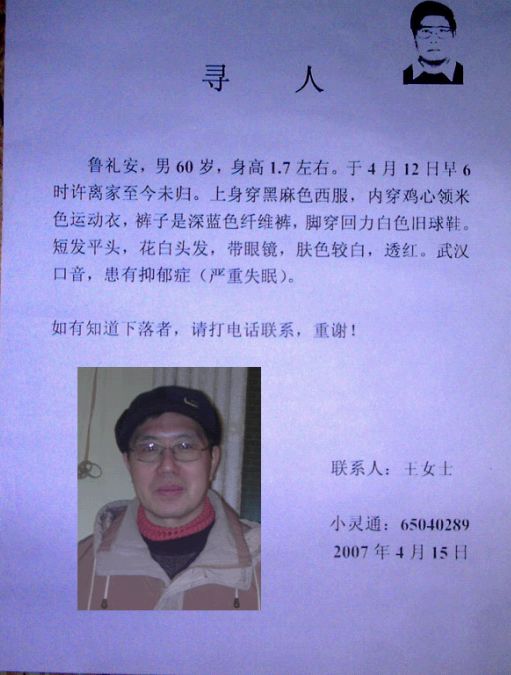 寻 人
鲁礼安，男 60 岁，身高 1.7 左右。于 4 月 12 日早 6
时许离家至今未归。上身穿黑麻色西服，内穿鸡心领米
色运动衣，裤子是深蓝色纤维裤，脚穿回力白色旧球鞋。
短发平头，花白头发，带眼镜，肤色较白，透红。武汉
口音，患有抑郁症（严重失眠）。
如有知道下落者，请打电话联系，重谢！
联系人：王女士
小灵通：65040289
2007 年 4 月 15 日